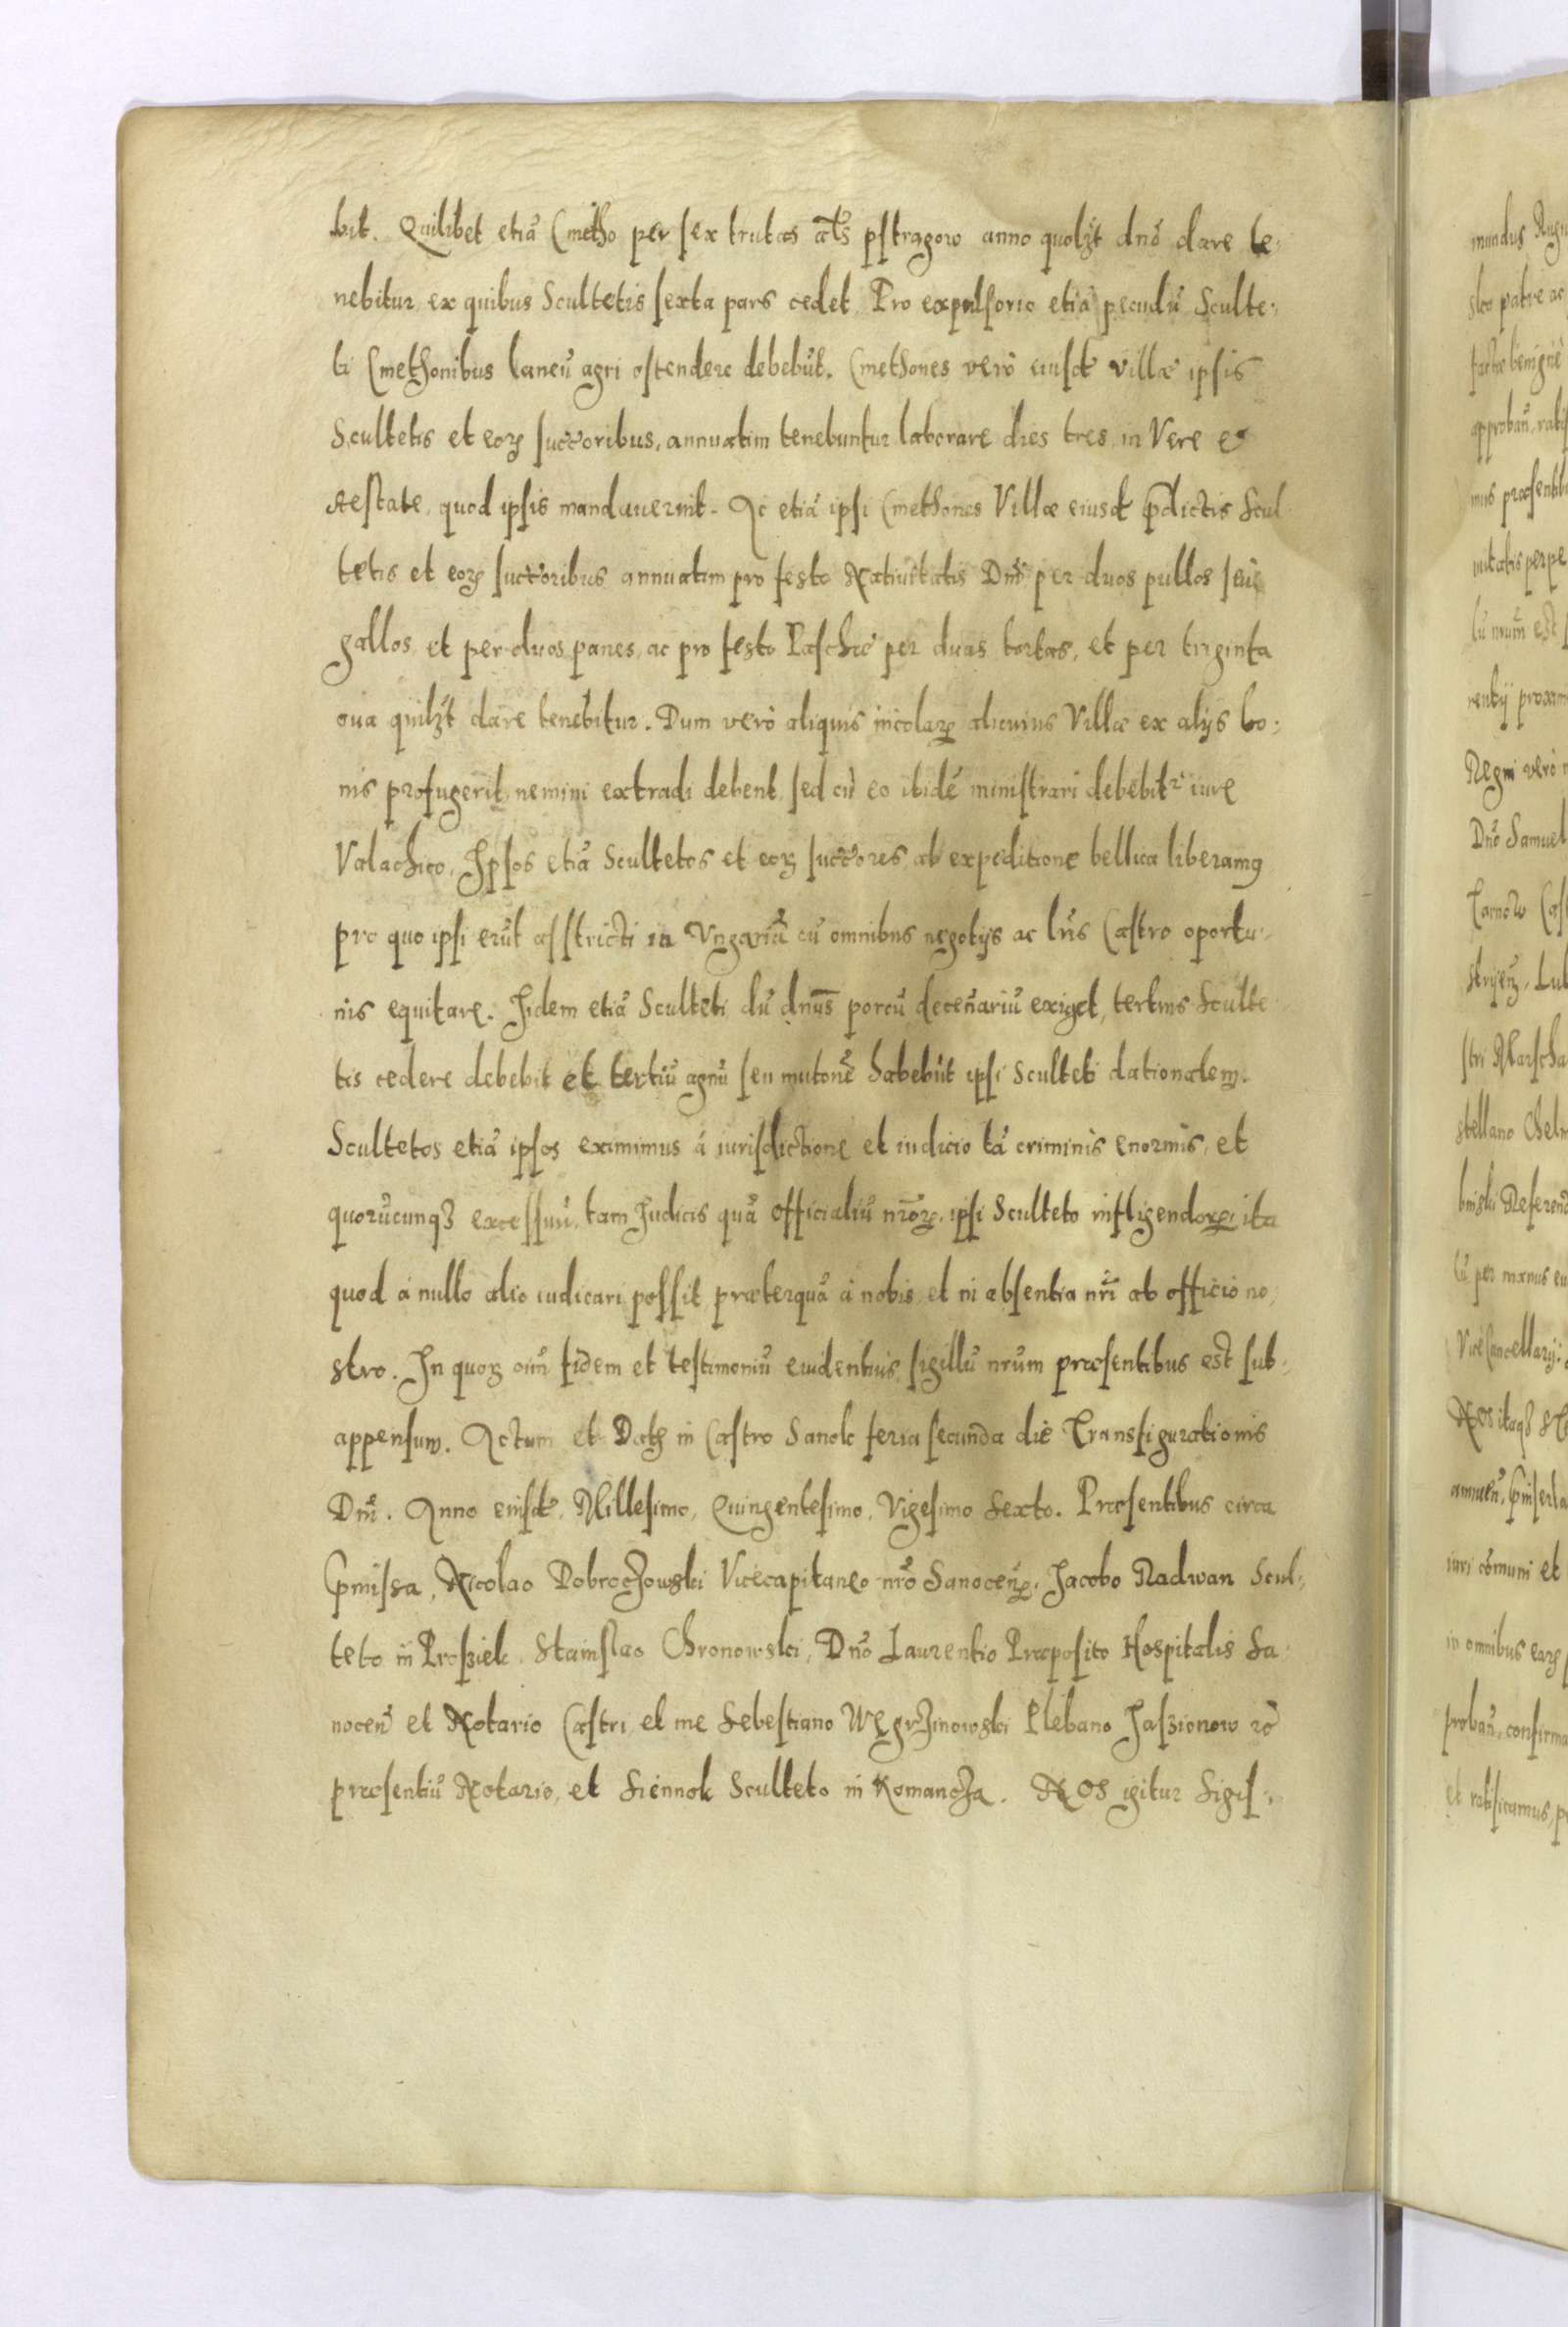 bit. Quilibet etiā Cmetho per sex trutas al̃s pstragow anno quolꝫt dnõ dare te-
nebitur, ex quibus Scultetis sexta pars cedet. Pro expulsorio etiā pecudū Sculte-
ti Cmethonibus laneū agri ostendere debebūt. Cmethones verò eiusd villæ ipsis
Scultetis et eoꝝ succoribus, annuatim tenebuntur laborare dies tres in Vere et
Aestate, quod ipsis mandauerint. Ac etiā ipsi Cmethones Villæ eiusd p̄dictis Scul-
tetis et eoꝝ succoribus annuatim pro festo Natiuitatis Dnĩ per duos pullos seu
gallos, et per duos panes, ac pro festo Paschæ per duas tortas, et per triginta
oua quilꝫt dare tenebitur. Dum verò aliquis incolaꝝ alicuius Villæ ex alijs bo-
nis profugerit, nemini extradi debent, sed cū eo ibidē ministrari debebitr iure
Valachico. Ipsos etiā Scultetos et eoꝝ succores ab expeditione bellica liberamꝰ
pro quo ipsi erūt asstricti in Vngariā cū omnibus negotijs ac lr̃is Castro oportu-
nis equitare. Iidem etiā Sculteti dū dnũs porcū decenariū exiget, tertius Sculte-
tis cedere debebit et tertiū agnū seu mutonē habebūt ipsi Sculteti dationalem.
Scultetos etiā ipsos eximimus á iurisdictione et iudicio tā criminis enormis, et
quorūcunqꝫ excessuū, tam Judicis quā officialiū nr̃oꝝ, ipsi Sculteto infligendoꝝ, ita
quod á nullo alio iudicari possit, præterquā á nobis, et in absentia nr̃i ab officio no-
stro. In quoꝝ oīm fidem et testimoniū euidentius, sigillū nrũm præsentibus est sub-
appensum. Actum et Datꝫ in Castro Sanok feria secunda die Transfigurationis
Dnĩ. Anno eiusd, Millesimo, Quingentesimo, Vigesimo Sexto. Præsentibus circa
p̄missa, Nicolao Dobroczowski Vicecapitaneo nr̃o Sanoceñ, Jacobo Radwan Scul-
teto in Prosziek, Stanislao Chronowski, Dnõ Laurentio Præposito Hospitalis Sa-
noceñ et Notario Castri, et me Sebestiano Węgrzinowski Plebano Jaszionow rõ
præsentiū Notario, et Siennok Sculteto in Komancza. Nos igitur Sigis-
mundus
sko patre ac
factæ benignè
approbaũ, rati
mus præsentib
nitatis perpe
lū nrũm est
rentij proxim
Regni verò
Dnõ Samuel
Tarnòw Cas
Lub
stri Marscha
stellano Chelm
Referend
tū per manus
ViceCancellarij
Nos itaqꝫ
iuri cōmuni et
in omnibus eaꝝ
probaũ, confirma
et ratificamus,